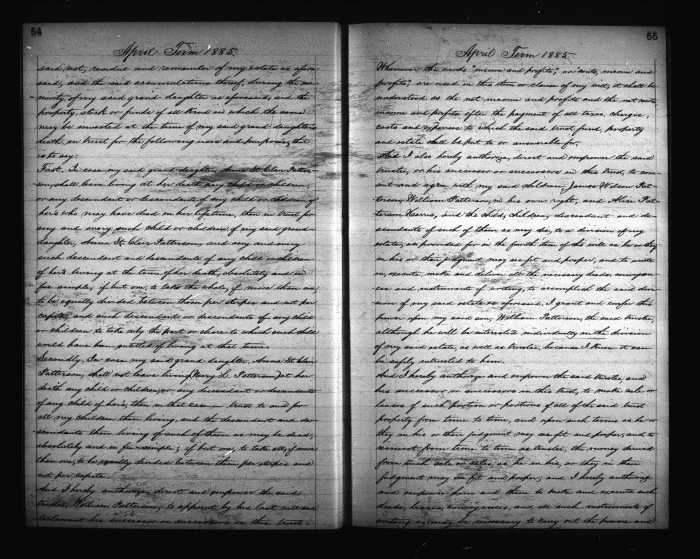 54
April Term 1885
said rest, residue and remainder of my estate as afore-
said, and the said accumulations thereof, during the mi-
nority, of my said grand daughter as aforesaid, and the
property, stock or funds of all kind in which the same
may be invested at the time of my said grand daughter's
death, in trust for the following uses and purposes, that
is to say:
First, In case my said grand daughter, Anna St. Clair Patter-
son, shall leave living at her death any child or children,
or any descendant or descendants of any child or children of
hers who may have died in her lifetime, then in trust for
any and every such child or children of my said grand
daughter, Anna St. Clair Patterson, and any and every
such descendant and descendants of any child or children
of hers living at the time of her death, absolutely and in
fee simple; if but one, to take the whole, if more than one
to be equally divided between them per stirpes and not per
capita, and such descendant or descendants of any child
or children to take only the part or share to which such child
would have been entitled if living at that time.
Secondly, In case my said grand daughter, Anna St. Clair
Patterson, shall not leave living (Mary L. Patterson) at her
death any child or children, or any descendant or descendants
of any child of hers, then in that case in trust to and for
all my children then living, and the descendant and de-
scendants then living of such of them as may be dead,
absolutely and in fee simple; if but one, to take all, if more
than one, to be equally divided between them per stirpes and
not per capita.
And I hereby authorize, direct and empower the said
trustee, William Patterson, to appoint by his last will and
testament his successor or successors in this trust.
55
April Term 1885
Wherever the words "income and profits," or "rents, income and
profits," are used in this item or clause of my will, it shall be
understood as the net income and profits and the net rents,
income and profits after the payment of all taxes, charges,
costs and expenses to which the said trust fund, property
and estate shall be put to or answerable for.
And I also hereby authorize, direct and empower the said
trustee, or his successor or successors in this trust, to con-
sent and agree, with my said children, James Wilson Pat-
terson, William Patterson, in his own right, and Alice Pat-
terson Harris, and the child, children, descendant and de-
scendants of such of them as may die, to a division of my
estate, as provided for in the fourth item of this will as he or they
in his or their judgment may see fit and proper, and to unite
in, execute, make and deliver all the necessary deeds, conveyan-
ces and instruments of writing, to accomplish the said divi-
sion of my said estate as aforesaid. I grant and confer this
power upon my said son, William Patterson, the said trustee,
although he will be interested individually in the division
of my said estate, as well as trustee, because I know it can
be safely intrusted to him.
And I hereby authorize and empower the said trustee, and
his successor or successors in this trust, to make sale or
leases of such portion or portions of all of the said trust
property from time to time, and upon such terms as he or
they in his or their judgment may see fit and proper, and to
reinvest, from time to time as trustee, the money derived
from such sale or sales, as he in his, or they in their
judgment may see fit and proper; and I hereby authorize
and empower him and them to make and execute such
deeds, leases, conveyances, and all such instruments of
writing as may be necessary to carry out the powers and